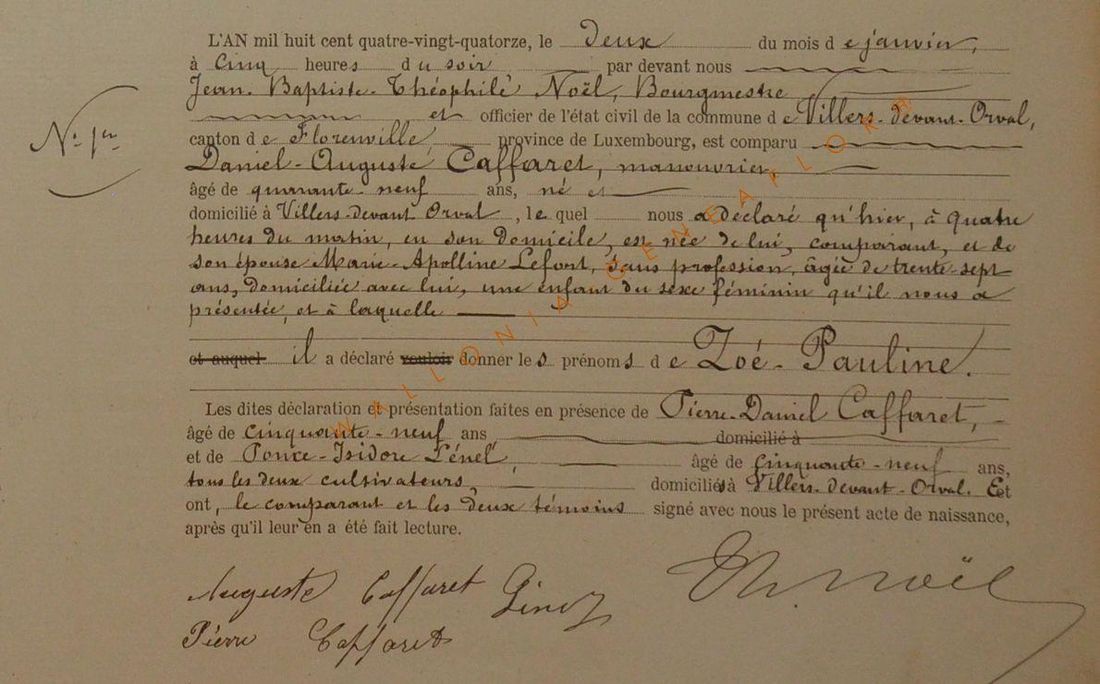 L'AN mil huit cent quatre-vingt-quatorze, le deux du mois de janvier,
à cinq heures du soir par devant nous
Jean-Baptiste-Théophile Noël, Bourgmestre
et officier de l'état civil de la commune de Villers-devant-Orval,
N° 1er
canton de Florenville, province de Luxembourg, est comparu
Daniel-Auguste Caffaret, manouvrier,
âgé de quarante-neuf ans, né et
domicilié à Villers-devant Orval, lequel nous a déclaré qu'hier, à quatre
heures du matin, en son domicile, est née de lui, comparant, et de
son épouse Marie-Apolline Lefort, sans profession, âgée de trente-sept
ans, domiciliée avec lui, une enfant du sexe féminin qu'il nous a
présentée, et à laquelle
et auquel il a déclaré vouloir donner les prénoms de Zoé-Pauline.
Les dites déclaration et présentation faites en présence de Pierre-Daniel Caffaret,
âgé de cinquante-neuf ans domicilié à
et de Ponce-Isidore Génel, âgé de cinquante-neuf ans,
tous les deux cultivateurs, domiciliés à Villers-devant-Orval. Et
ont, le comparant et les deux témoins signé avec nous le présent acte de naissance,
après qu'il leur en a été fait lecture.
Auguste Caffaret Th. Noël
Pierre Caffaret
WALLONIA GENEAFLORE